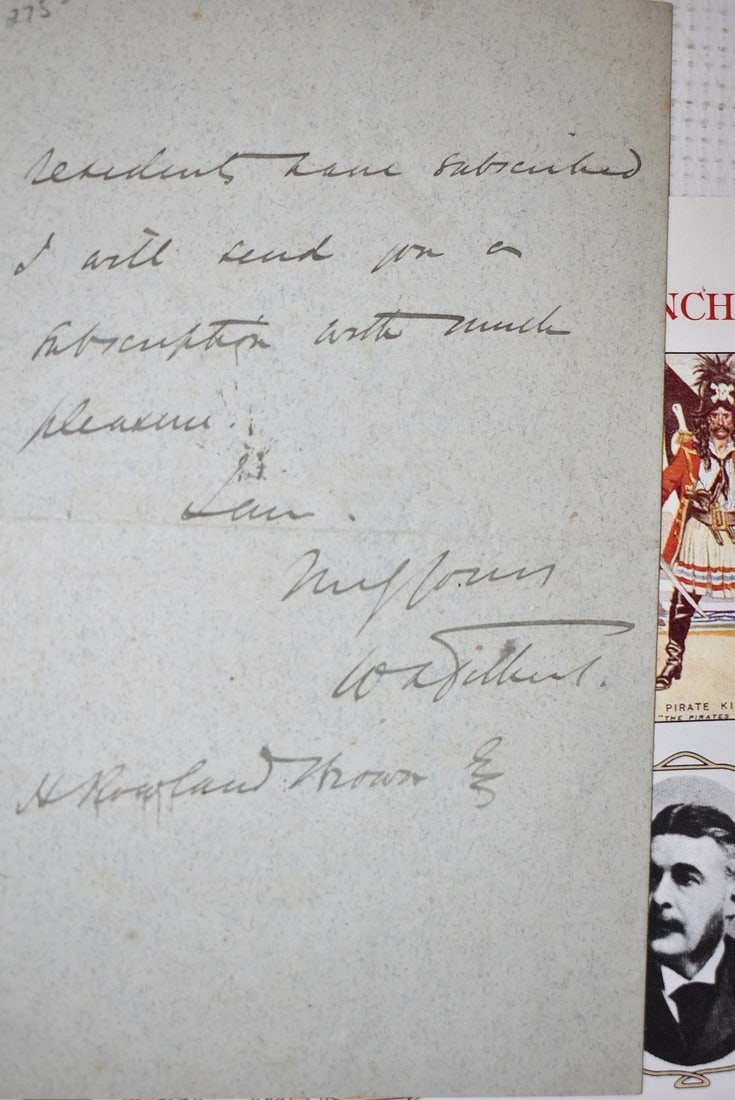 275
residents have subscribed
I will send you a
subscription with much
pleasure.
I am.
Yours
WSGilbert.
H Rowland Brown Esq
NCH
PIRATE KI
"THE PIRATES